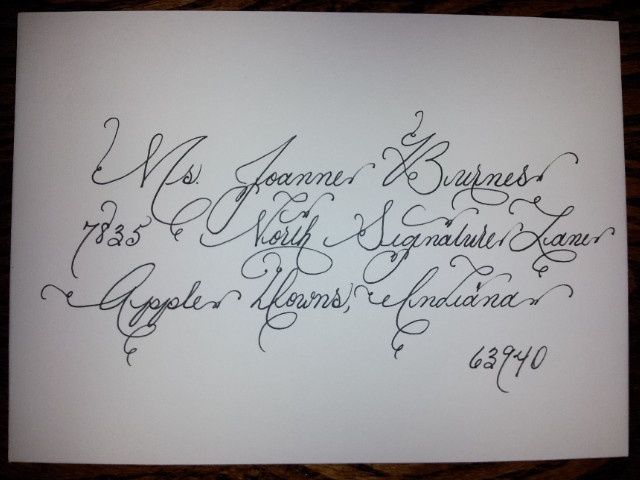 Ms. Joanne Burnes
7835 North Signature Lane
Apple Downs, Indiana
63940